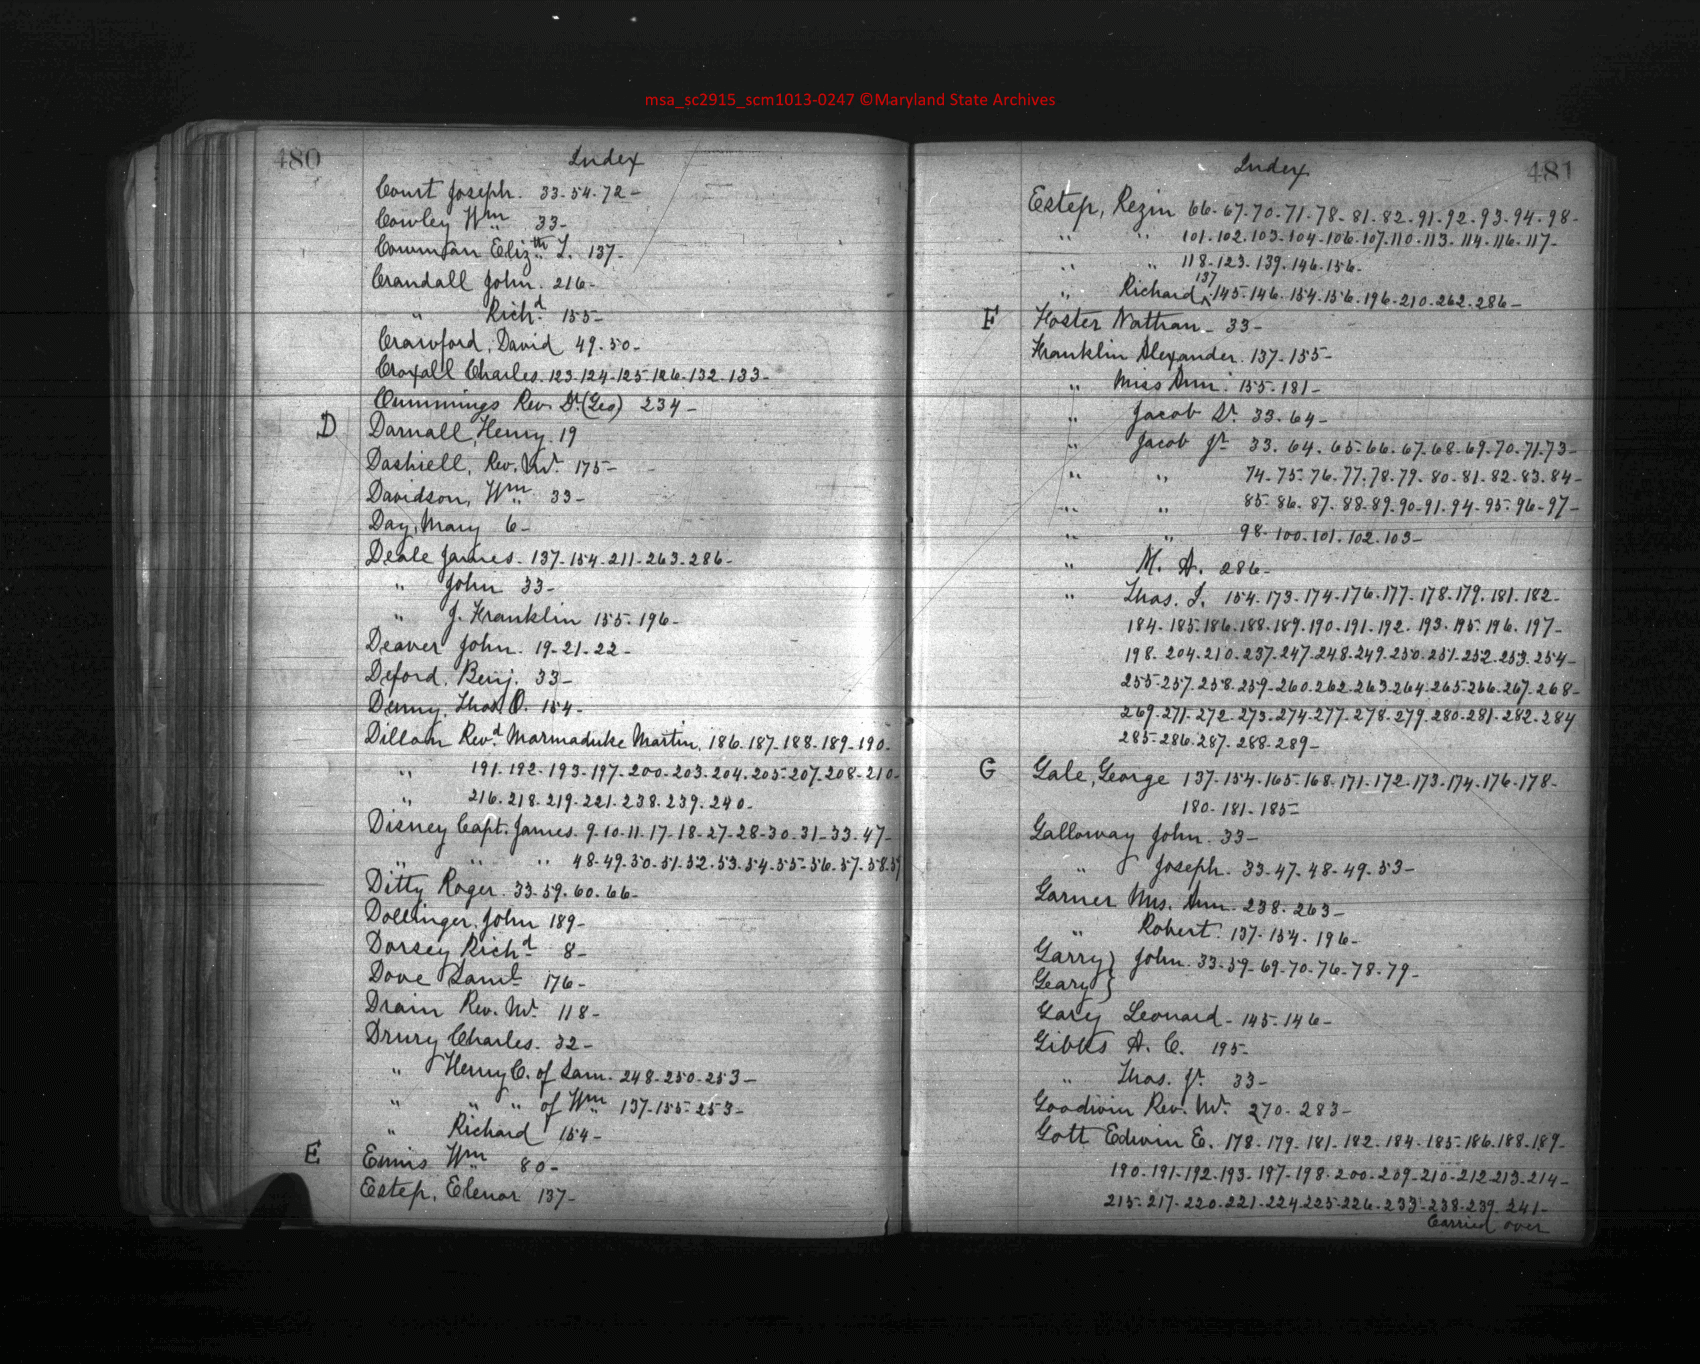 msa_sc2915_scm1013-0247 ©Maryland State Archives
480
Index
Court Joseph. 33-54-72-
Cowley Wm 33-
Cowman Elizth T. 137-
Crandall John. 216-
" Richd 155-
Crawford, David 49-50-
Croxall Charles. 123-124-125-126-132-133-
Cummings Rev. Dr. (Geo) 234-
D Darnall, Henry. 19
Dashiell, Rev. Mr. 175-
Davidson, Wm 33-
Day, Mary 6-
Deale James. 137-154-211-263-286-
" John 33-
" J. Franklin 155-196-
Deaver John. 19-21-22-
Deford, Benj. 33-
Denny, Thos O. 154-
Dillon Revd Marmaduke Martin, 186-187-188-189-190-
" 191-192-193-197-200-203-204-205-207-208-210-
" 216-218-219-221-238-239-240-
Disney Capt. James. 9-10-11-17-18-27-28-30-31-33-47-
" " " 48-49-50-51-52-53-54-55-56-57-58-59
Ditty Roger. 33-59-60-66-
Dollinger, John 189-
Dorsey Richd 8-
Dove Saml 176-
Drain Rev. Mr. 118-
Drury Charles. 32-
" Henry C. of Sam. 248-250-253-
" " " of Wm 137-155-253-
" Richard 154-
E Ennis Wm 80-
Estep, Elenor 137-
481
Index
Estep, Rezin 66-67-70-71-78-81-82-91-92-93-94-98-
" " 101-102-103-104-106-107-110-113-114-116-117-
" " 118-123-139-146-156-
137
" Richard ^ 145-146-154-156-196-210-262-286-
F Foster Nathan- 33-
Franklin Alexander. 137-155-
" Miss Ann. 155-181-
" Jacob Dr. 33-64-
" Jacob Jr. 33-64-65-66-67-68-69-70-71-73-
" " 74-75-76-77-78-79-80-81-82-83-84-
" " 85-86-87-88-89-90-91-94-95-96-97-
" " 98-100-101-102-103-
" M. A. 286-
" Thos. J. 154-173-174-176-177-178-179-181-182-
184-185-186-188-189-190-191-192-193-195-196-197-
198-204-210-237-247-248-249-250-251-252-253-254-
255-257-258-259-260-262-263-264-265-266-267-268-
269-271-272-273-274-277-278-279-280-281-282-284
285-286-287-288-289-
G Gale, George 137-154-165-168-171-172-173-174-176-178-
180-181-185-
Galloway John. 33-
" Joseph. 33-47-48-49-53-
Garner Mrs. Ann. 238-263-
" Robert. 137-154-196-
Garry } John. 33-59-69-70-76-78-79-
Geary }
Gary Leonard- 145-146-
Gibbs A. C. 195-
" Thos. Jr. 33-
Goodwin Rev. Mr. 270-283-
Gott Edwin E. 178-179-181-182-184-185-186-188-189-
190-191-192-193-197-198-200-209-210-212-213-214-
215-217-220-221-224-225-226-233-238-239-241-
Carried over